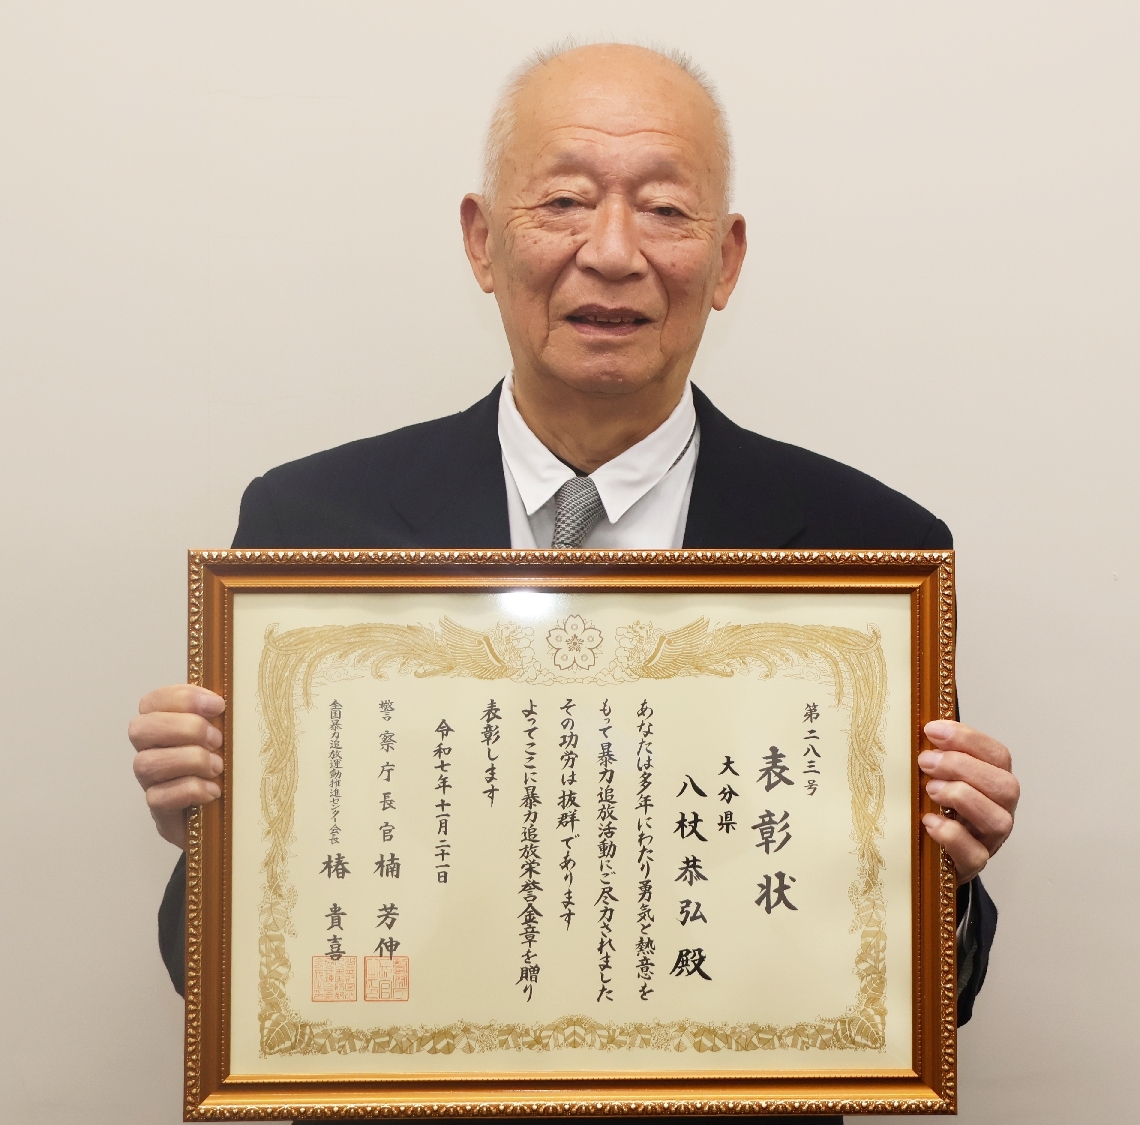 第二八三号
表彰状
大分県
八杖恭弘殿
あなたは多年にわたり勇気と熱意を
もって暴力追放活動にご尽力されました
その功労は抜群であります
よってここに暴力追放栄誉金章を贈り
表彰します
令和七年十一月二十一日
警察庁長官 楠芳伸
全国暴力追放運動推進センター会長 椿貴喜